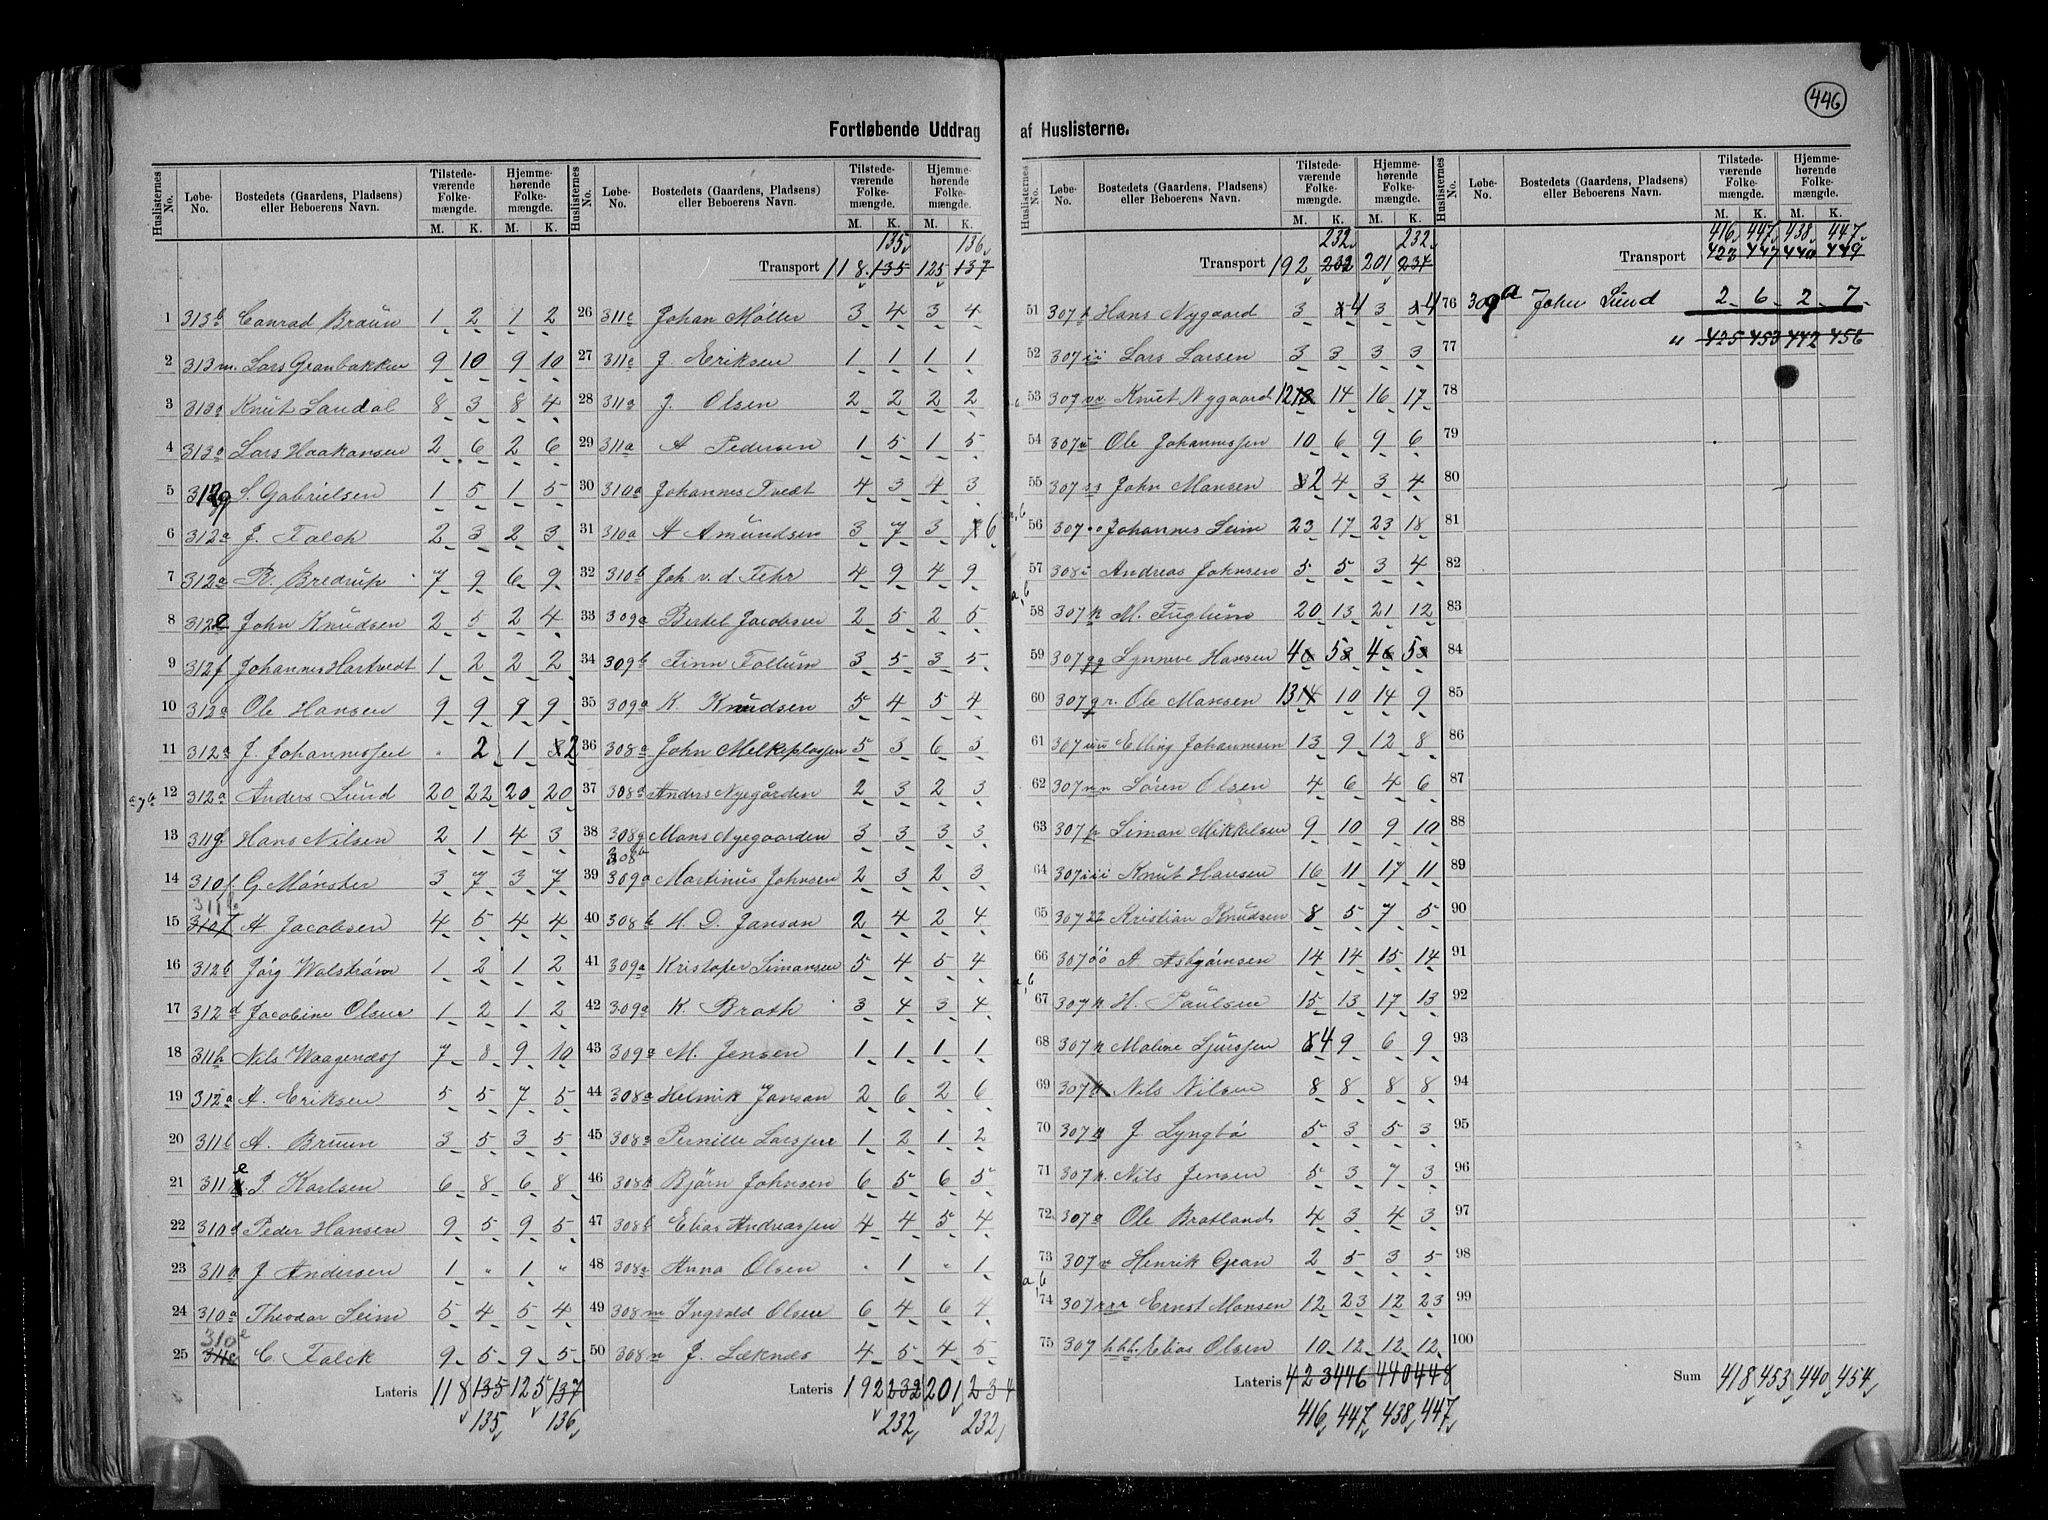 446
Fortløbende Uddrag af Huslisterne.
Huslisternes No. Løbe-No. Bostedets (Gaardens, Pladsens) eller Beboerens Navn. Tilstedeværende Folkemængde. M. K. Hjemmehørende Folkemængde. M. K.
1 313b Conrad Braun 1 2 1 2
2 313m. Lars Granbakken 9 10 9 10
3 313a Knut Sandal 8 3 8 4
4 313a Lars Haakansen 2 6 2 6
5 S. Gabrielsen 1 5 1 5
6 312a J. Falch 2 3 2 3
7 312a R. Bredrup 7 9 6 9
8 312e John Knudsen 2 5 2 4
9 312f Johannes Hartvedt 1 2 2 2
10 312a Ole Hansen 9 9 9 9
11 312a J. Johannessen " 2 1 2
12 312a Anders Lund 20 22 20 20
13 311g Hans Nilsen 2 1 4 3
14 310f. G. Mønster 3 7 3 7
15 311b A Jacobsen 4 5 4 4
16 312b Jörg Walström 1 2 1 2
17 312d Jacobine Olsen 1 2 1 2
18 311h Nils Waagendsf 7 8 9 10
19 312a A. Eriksen 5 5 7 5
20 311b A. Bruun 3 5 3 5
21 311e P Karlsen 6 8 6 8
22 310d Peder Hansen 9 5 9 5
23 311a J Andersen 1 " 1 "
24 310a Theodor Seim 5 4 5 4
25 310e C. Falck 9 5 9 5
Lateris 118 135 125 137
135 136
Huslisternes No. Løbe-No. Bostedets (Gaardens, Pladsens) eller Beboerens Navn. Tilstedeværende Folkemængde. M. K. Hjemmehørende Folkemængde. M. K.
135 136
Transport 118 135 125 137
26 311c Johan Møller 3 4 3 4
27 311c J. Eriksen 1 1 1 1
28 311a J. Olsen 2 2 2 2
29 311a A Pedersen 1 5 1 5
30 310a Johannes Tvedt 4 3 4 3
31 310a A Amundsen 3 7 3 6
32 310b Joh v. d. Fehr 4 9 4 9
33 309a Bertel Jacobsen 2 5 2 5
34 309b Finn Follum 3 5 3 5
35 309a K. Knudsen 5 4 5 4
36 308a John Melkeplassen 5 3 6 3
37 308d Anders Nyegården 2 3 2 3
38 308g Mons Nyegaarden 3 3 3 3
39 309a Martinus Johnsen 2 3 2 3
40 308b H. D. Janson 2 4 2 4
41 309a Kristofer Simonsen 5 4 5 4
42 309a K. Brath 3 4 3 4
43 309a M. Jensen 1 1 1 1
44 308a Helmik Janson 2 6 2 6
45 308a Pernille Larssen 1 2 1 2
46 308b Bjørn Johnsen 6 5 6 5
47 308b Elias Andreassen 4 4 5 4
48 308a Anna Olsen " 1 " 1
49 308m Ingvald Olsen 6 4 6 4
50 308n J. Leknes 4 5 4 5
Lateris 192 232 201 234
232 232
Huslisternes No. Løbe-No. Bostedets (Gaardens, Pladsens) eller Beboerens Navn. Tilstedeværende Folkemængde. M. K. Hjemmehørende Folkemængde. M. K.
232 232
Transport 192 232 201 234
51 307k Hans Nygaard 3 4 3 4
52 307ii Lars Larsen 3 3 3 3
53 307vv Knut Nygaard 12 14 16 17
54 307u Ole Johannessen 10 6 9 6
55 307ss John Monsen 2 4 3 4
56 307 Johannes Seim 23 17 23 18
57 308i Andreas Johnsen 5 5 3 4
58 307k M. Fuglum 20 13 21 12
59 307gg Synneve Hansen 4 5 4 5
60 307gr. Ole Monsen 13 10 14 9
61 307uu Elling Johannesen 13 9 12 8
62 307nn Sören Olsen 4 6 4 6
63 307h Simon Mikkelsen 9 10 9 10
64 307iii Knut Hansen 16 11 17 11
65 307 Kristian Knudsen 8 5 7 5
66 307öö A. Asbjörnsen 14 14 15 14
67 307k H. Paulsen 15 13 17 13
68 307n Maline Sjurssen 4 9 6 9
69 307k Nils Nilsen 8 8 8 8
70 307n J Lyngbö 5 3 5 3
71 307n. Nils Jensen 5 3 7 3
72 307a Ole Bratland 4 3 4 3
73 307v Henrik Gran 2 5 3 5
74 307rrr Ernst Monsen 12 23 12 23
75 307hhh. Elias Olsen 10 12 12 12
Lateris 423 446 440 448
416 447 438 447
Huslisternes No. Løbe-No. Bostedets (Gaardens, Pladsens) eller Beboerens Navn. Tilstedeværende Folkemængde. M. K. Hjemmehørende Folkemængde. M. K.
416 447 438 447
Transport 423 447 440 449
76 309a John Lund 2 6 2 7
77 " 425 453 442 456
78
79
80
81
82
83
84
85
86
87
88
89
90
91
92
93
94
95
96
97
98
99
100
Sum 418 453 440 454